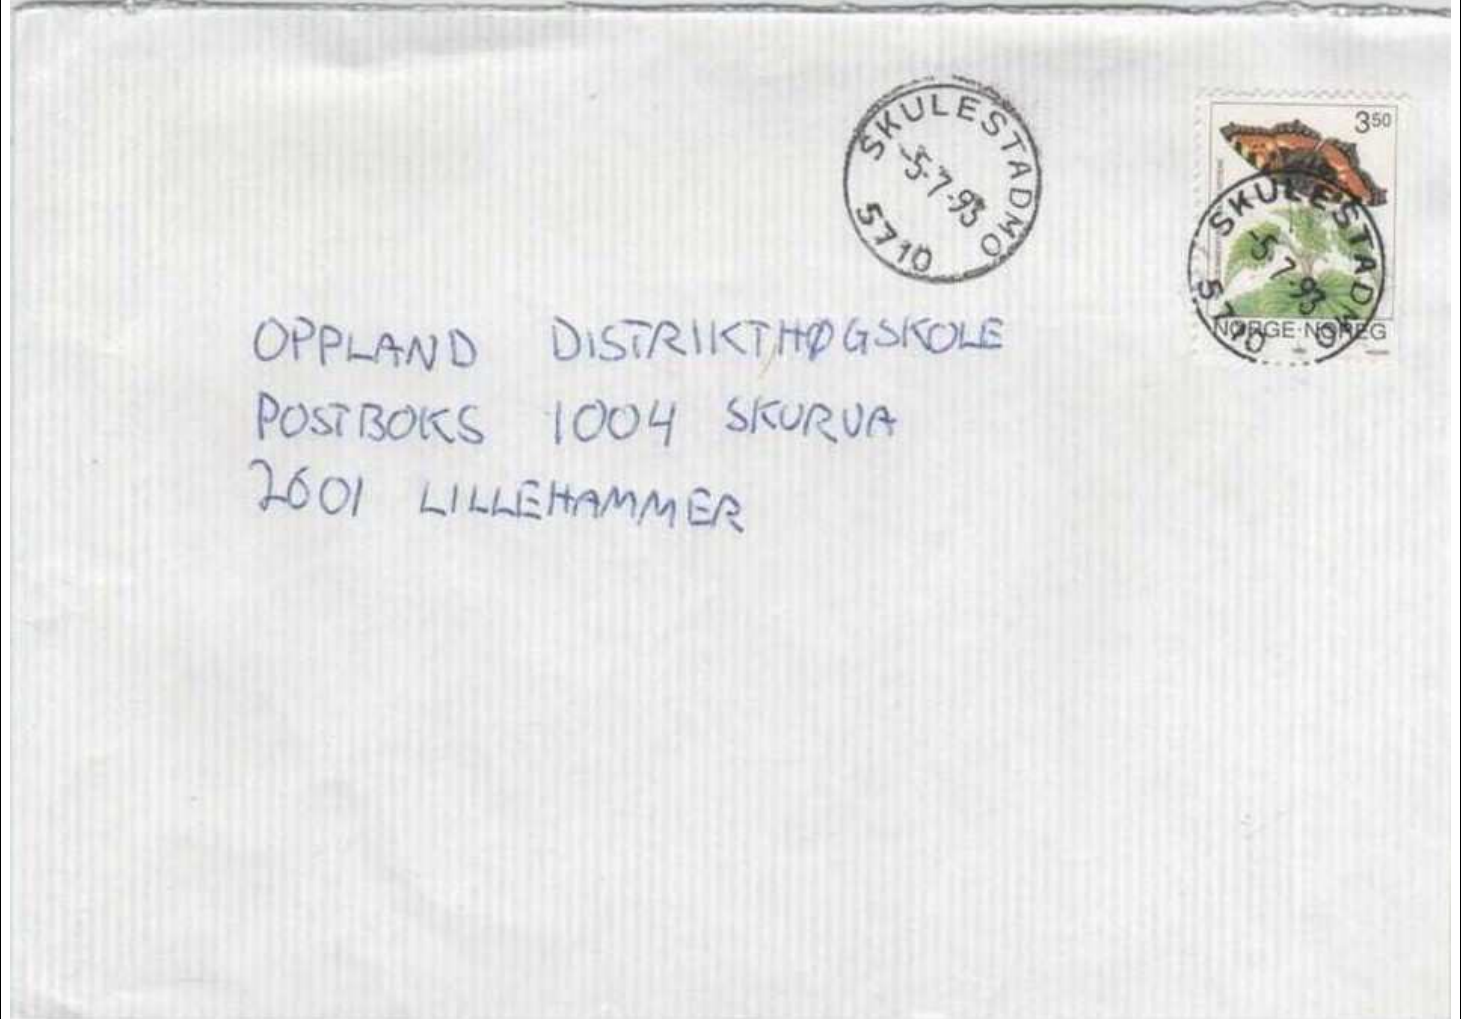 SKULESTADMO
-5.7.93
5710
3 50
SKULESTADMO
-5.7.93
5710
NORGE·NOREG
OPPLAND DISTRIKTHØGSKOLE
POSTBOKS 1004 SKURVA
2601 LILLEHAMMER